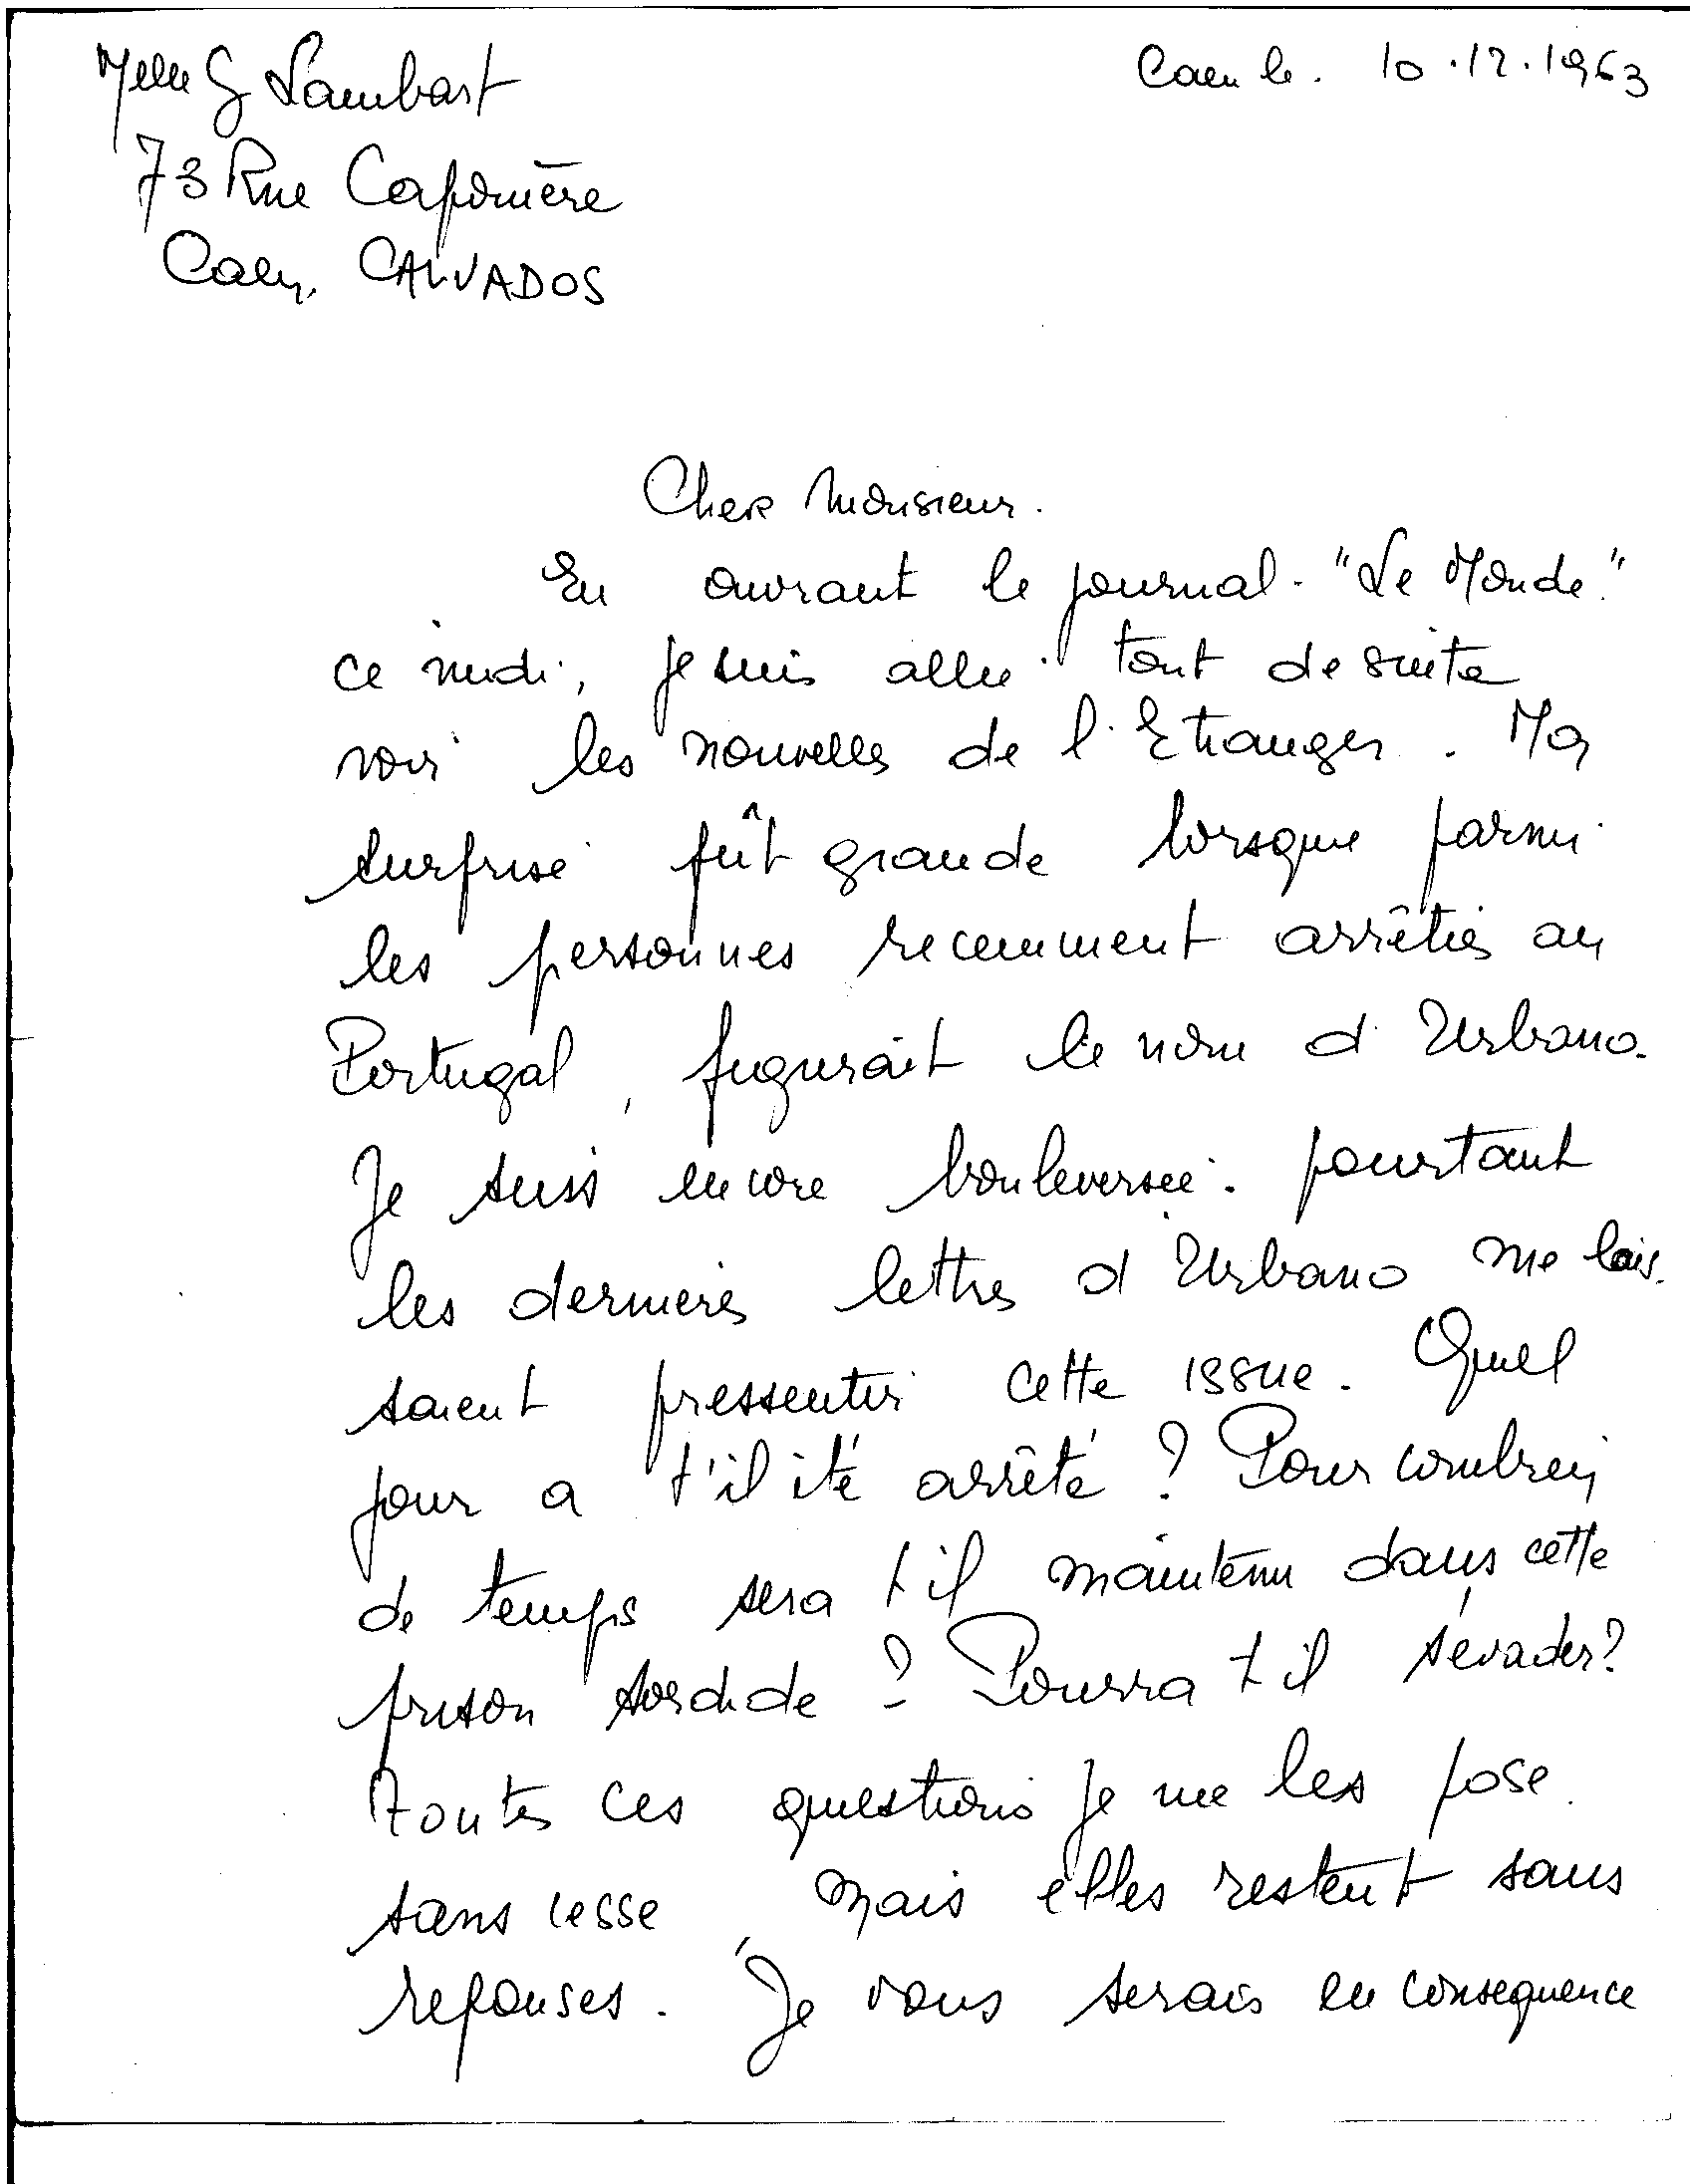 Melle G Lambart
Caen le. 10.12.1963
73 Rue Caponière
Caen, CALVADOS
Cher Monsieur.
En ouvrant le journal "Le Monde"
ce midi, je suis allée tout de suite
voir les nouvelles de l'Etranger. Ma
surprise fût grande lorsque parmi
les personnes recemment arrêtées au
Portugal, figurait le nom d'Urbano.
Je suis encore bouleversée. pourtant
les dernieres lettres d'Urbano me lais-
saient pressentir cette issue. Quel
jour a t'il été arrêté ? Pour combien
de temps sera t il maintenu dans cette
prison sordide ? Pourra t il s'évader?
toutes ces questions je me les pose
sans cesse, mais elles restent sans
reponses. Je vous serais en consequence